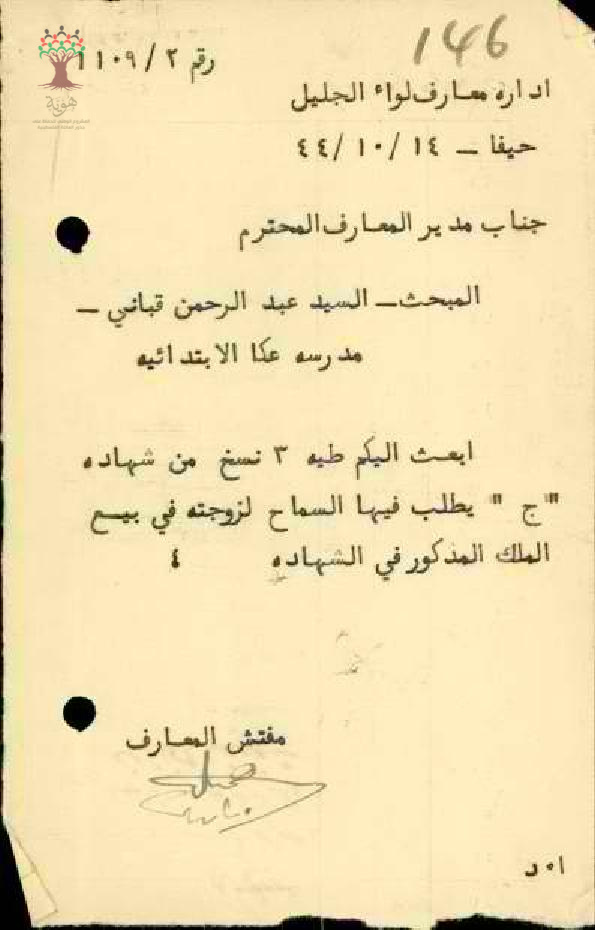 146
رقم ٢/ ١١٠٩
هوية
اداره معارف لواء الجليل
حيفا ـ ١٤ /١٠ /٤٤
جناب مدير المعارف المحترم
المبحث ـ السيد عبد الرحمن قباني ـ
مدرسه عكا الابتدائيه
ابعث اليكم طيه ٣ نسخ من شهاده
"ج " يطلب فيها السماح لزوجته في بيع
الملك المذكور في الشهاده ٤
مفتش المعارف
ا ٠ د